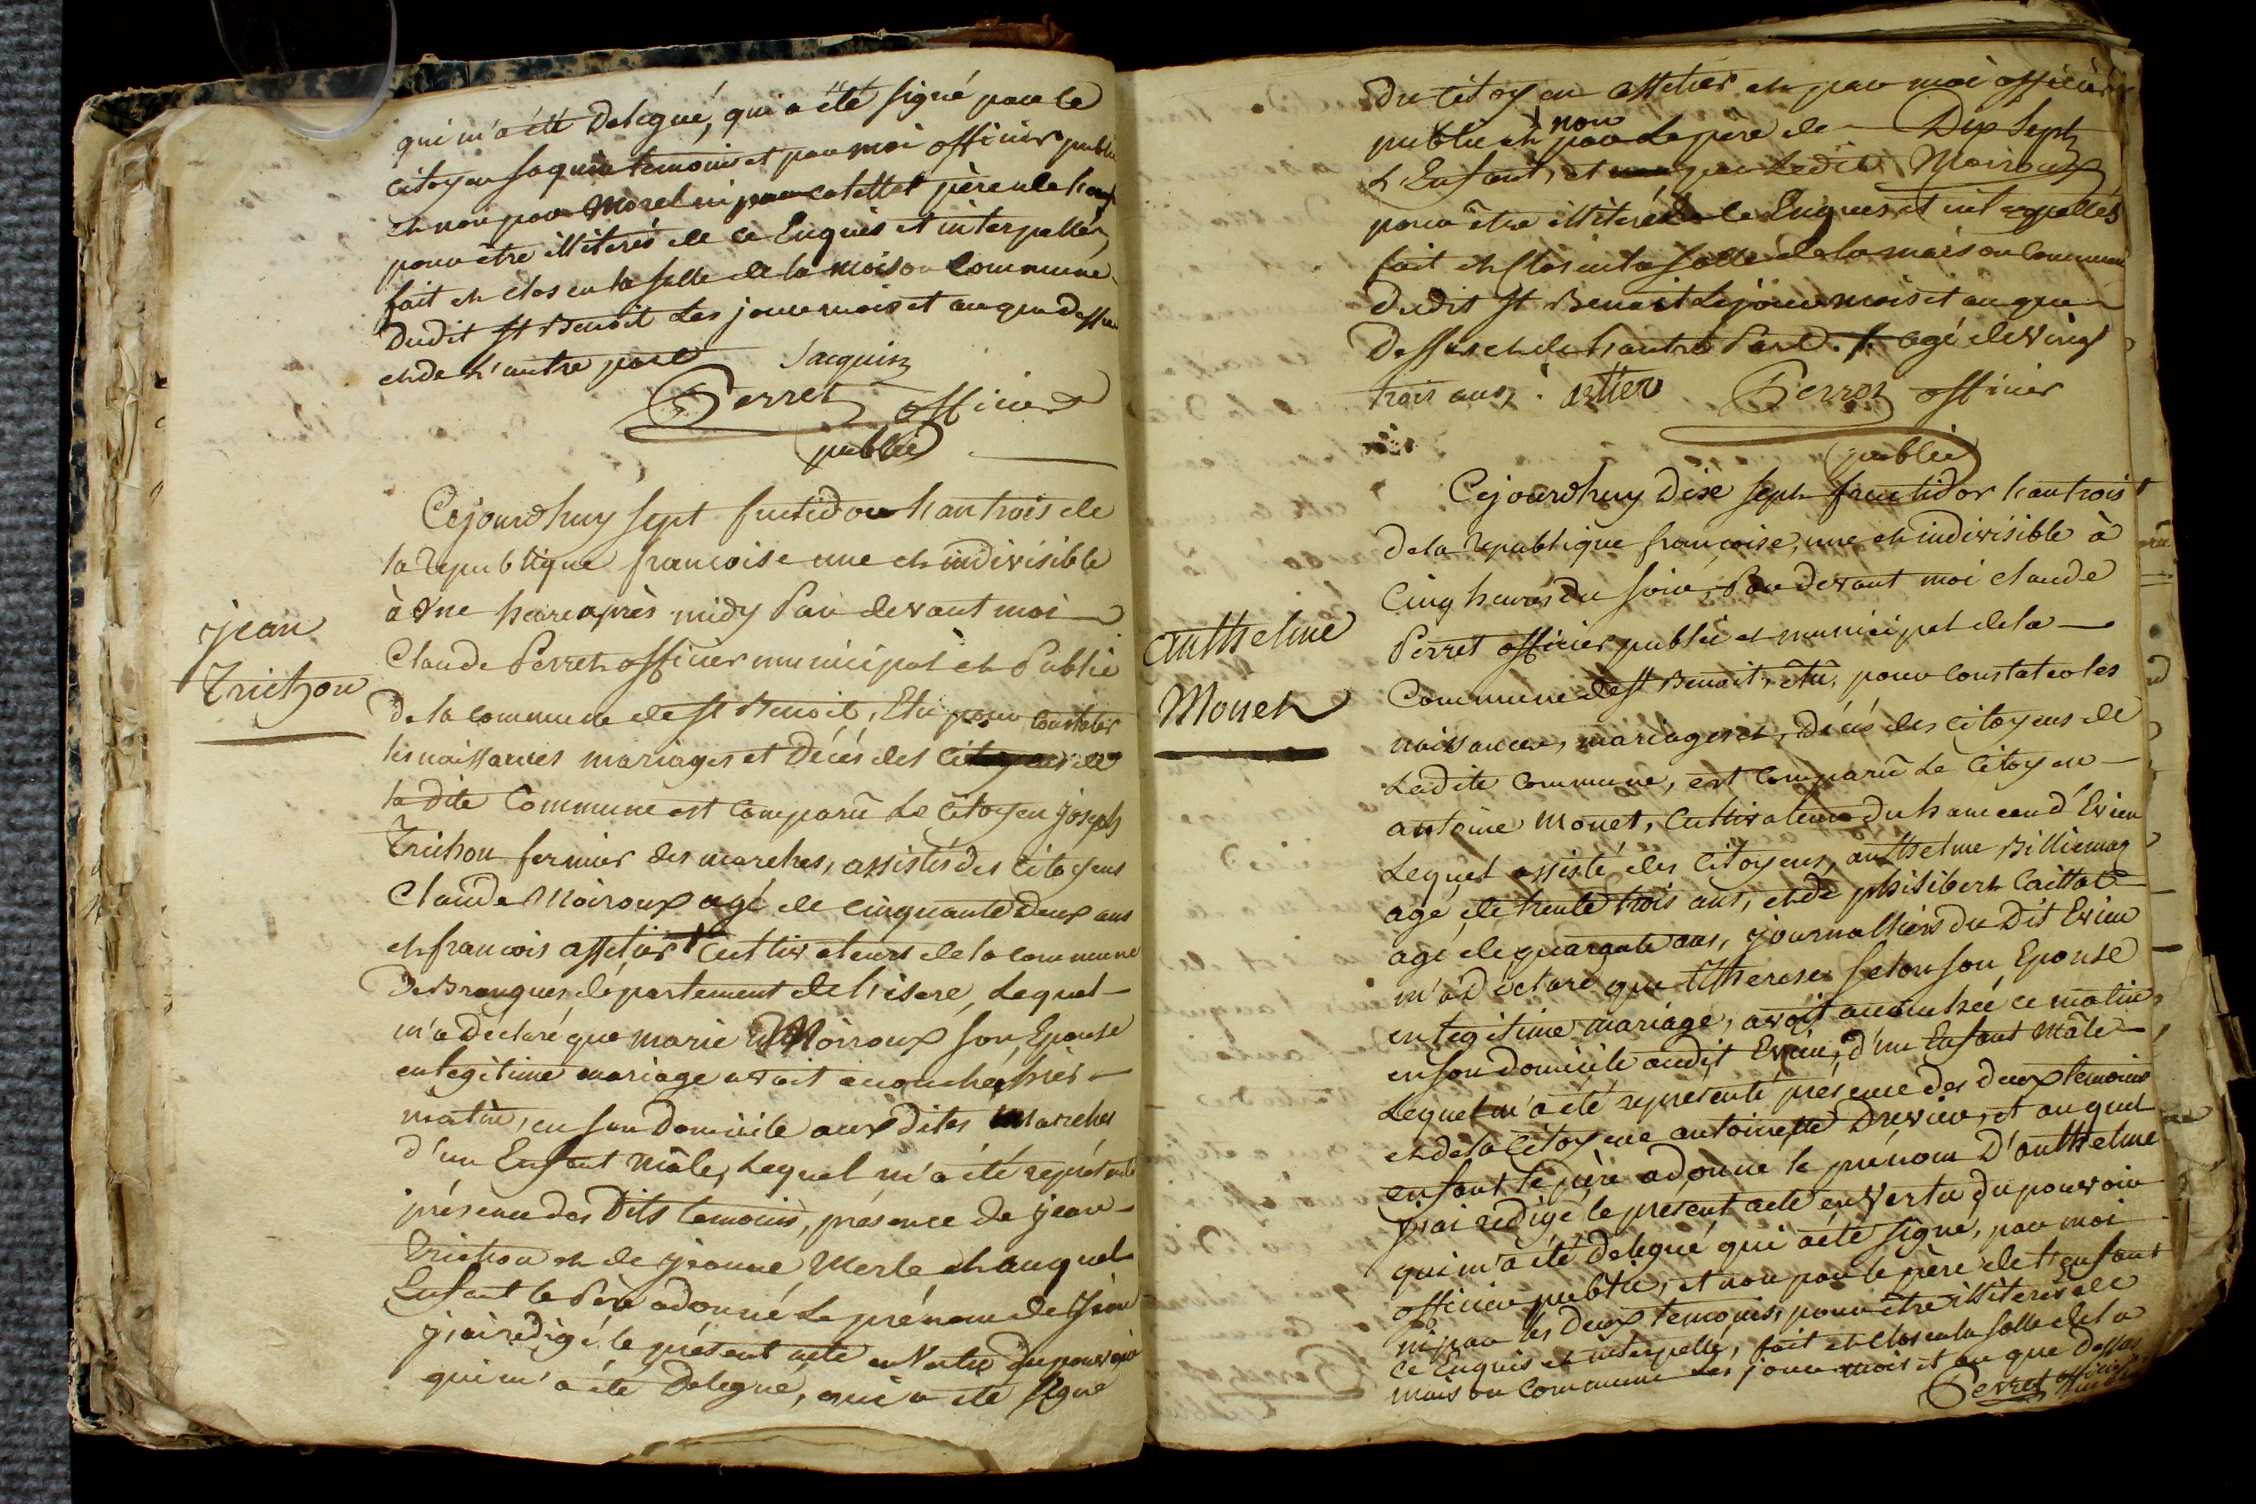 qui m'a été Delegué, qui a été signé par le
citoyen Jaquin temoin et par moi officier public
et non par Morel ni par Catellet père de l'enfant
pour être illiterés de ce Enquis et interpellés,
fait et clos en la salle de la maison Commune
Dudit St Benoit Les jour mois et an que dessus
et de l'autre part Jacquin
Perret officier
public
jean
Trichon
Cejourd'huy sept fructidor l'an trois de
la republique francoise une et indivisible
à une heure après midy Par devant moi
Claude Perret officier municipal et Public
De la commune de St Benoit, Elu pour Constater
les naissances mariages et Décés des Citoyens de
la dite Commune est Comparû Le Citoyen joseph
Trichon fermier des marches, assistés des Citoyens
Claude Moiroux agé de cinquante deux ans
et francois assetier + Cultivateurs de la commune
De Brangues département de l'isere, Lequel
m'a Déclaré que marie Moiroux son Epouse
en legitime mariage avoit accouchée hier
matin, en son Domicile aux dites Marches
d'un Enfant Mâle, Lequel m'a été représenté
présence des Dits temoins, présence de jean
Trichon et de jeanne Merle et auquel
Enfant le Père a donné Le prénom de Jean
j'ai redigé le présent acte en Vertu du pouvoir
qui m'a été Delegué, qui a été signé
Du citoyen assetier et par moi officier
public et non par Le père de Dix sept
L'Enfant, et par Ledit Moiroux
pour être illiterés de ce Enquis et interpellés
fait et clos en la salle de la maison Commune
Dudit St Benoit Le jour mois et an que
Dessus et de l'autre Part. + agé de vingt
trois ans. astier Perret officier
public
anthelme
Monet
Cejourd'huy Dix sept fructidor l'an trois
de la republique françoise, une et indivisible à
Cinq heures du soir, Par devant moi claude
Perret officier public et municipal de la
Commune de St Benoit, élû, pour Constater les
naissances, mariages et, Décés des Citoyens de
Ladite Commune, est Comparû Le Citoyen
antoine Monet, Cultivateur du hameau d'Evieu
Lequel assisté des Citoyens, anthelme Billiemaz
agé de trente trois ans, et de philibert Caittat
agé de quarante ans, journalliers du Dit Evieu
m'a Déclaré que Therese son Epouse
en legitime mariage, avoit accouchée ce matin,
en son domicile audit Evieu, d'un Enfant Mâle
Lequel m'a été représenté présence des deux temoins
et de la Citoyene antoinette Drevieu, et auquel
enfant le père a donné le prénom D'anthelme
j'ai redigé le présent acte en Vertu du pouvoir
qui m'a été delegué qui a été signé, par moi
officier public, et non par le père de l'enfant
ni par les Deux temoins, pour être illiterés de
ce Enquis et interpellé, fait et clos en la salle de la
maison Commune Les jour mois et an que Dessus
Perret officier